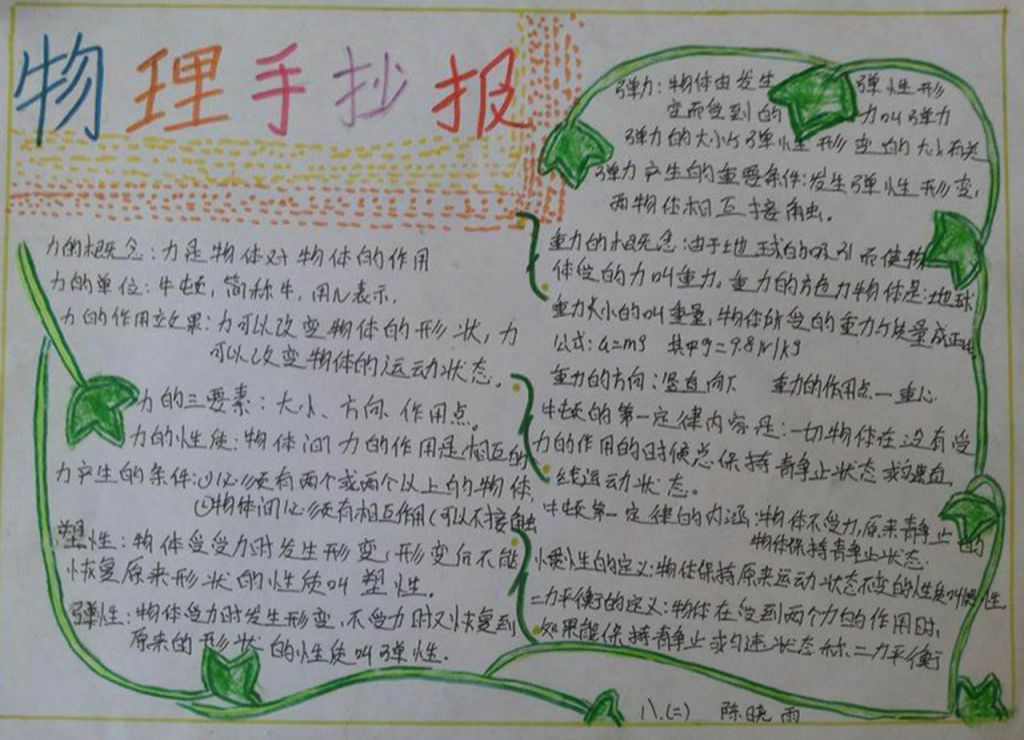 物理手抄报
力的概念：力是物体对物体的作用
力的单位：牛顿，简称牛，用N表示，
力的作用立效果：力可以改变物体的形状，力
可以改变物体的运动状态。
力的三要素：大小、方向、作用点。
力的性质：物体间力的作用是相互的
力产生的条件：①必须有两个或两个以上的物体，
②物体间必须有相互作用（可以不接触
塑性：物体受受力时发生形变，形变后不能
恢复原来形状的性质叫塑性。
弹性：物体受力时发生形变，不受力时又恢复到
原来的形状的性质叫弹性．
弹力：物体由发生弹性形
变而受到的力叫弹力
弹力的大小与弹性形变的大小有关
弹力产生的重要条件：发生弹性形变，
两物体相互接触。
重力的概念：由于地球的吸引而使物
体受的力叫重力。重力的方色力物体是：地球
重力大小的叫重量，物体所受的重力与质量成正比
公式：G=mg 其中g=9.8N/kg
重力的方向：竖直向下 重力的作用点一重心
牛顿的第一定律内容是：一切物体在没有受
力的作用的时候总保持静止状态或匀速直
线运动状态。
牛顿第一定律的内涵：物体不受力，原来静止的
物体保持静止状态．
惯性的定义：物体保持原来运动状态不变的性质叫惯性
二力平衡的定义：物体在受到两个力的作用时，
如果能保持静止或匀速状态称二力平衡
八.(二) 陈晓雨